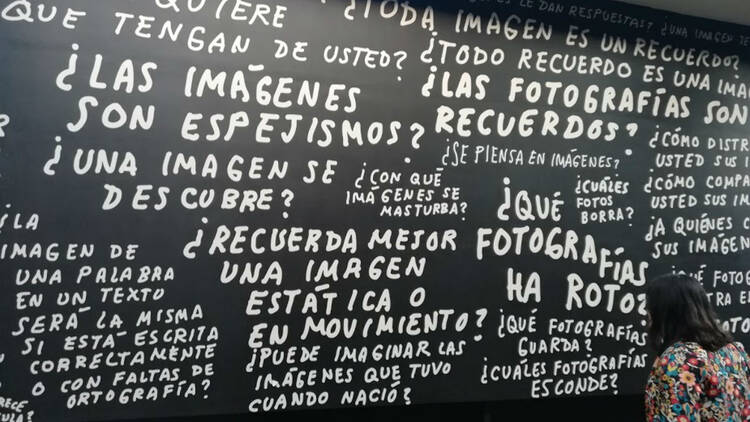 QUIERE
QUE TENGAN DE USTED?
¿LAS IMÁGENES
SON ESPEJISMOS?
¿UNA IMAGEN SE
DESCUBRE?
¿CON QUÉ
IMÁGENES SE
MASTURBA?
LA
IMAGEN DE
UNA PALABRA
EN UN TEXTO
SERÁ LA MISMA
SI ESTÁ ESCRITA
CORRECTAMENTE
O CON FALTAS DE
ORTOGRAFÍA?
¿RECUERDA MEJOR
UNA IMAGEN
ESTÁTICA O
EN MOVIMIENTO?
¿PUEDE IMAGINAR LAS
IMÁGENES QUE TUVO
CUANDO NACIÓ?
LE DAN RESPUESTAS? ¿UNA IMAGEN
¿TODA IMAGEN ES UN RECUERDO?
¿TODO RECUERDO ES UNA IMA
¿LAS FOTOGRAFÍAS SON
RECUERDOS?
¿SE PIENSA EN IMÁGENES?
¿QUÉ
FOTOGRAFÍAS
HA ROTO?
¿CUÁLES
FOTOS
BORRA?
¿QUÉ FOTOGRAFÍAS
GUARDA?
¿CUALES FOTOGRAFÍAS
ESCONDE?
¿CÓMO DISTR
USTED SUS I
¿CÓMO COMPA
USTED SUS IM
¿A QUIÉNES
SUS IMÁGEN
¿QUÉ FOTO